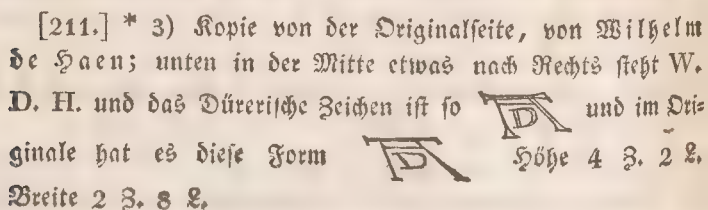 [211.] * 3) Kopie von der Originalſeite, von Wilhelm
de Haen; unten in der Mitte etwas nach Rechts ſteht W.
D. H. und das Düreriſche Zeichen iſt ſo AD und im Ori=
ginale hat es dieſe Form AD Höhe 4 Z. 2 L.
Breite 2 Z. 8 L.